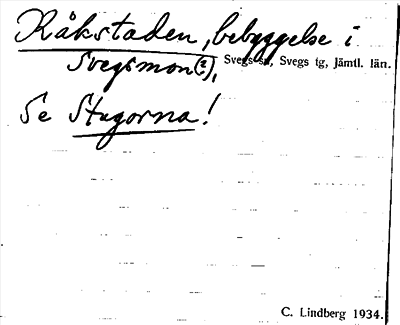 Råkstaden, bebyggelse i
Svegsmon(?), Svegs sn, Svegs tg, Jämtl. län.
Se Stugorna!
C. Lindberg 1934.